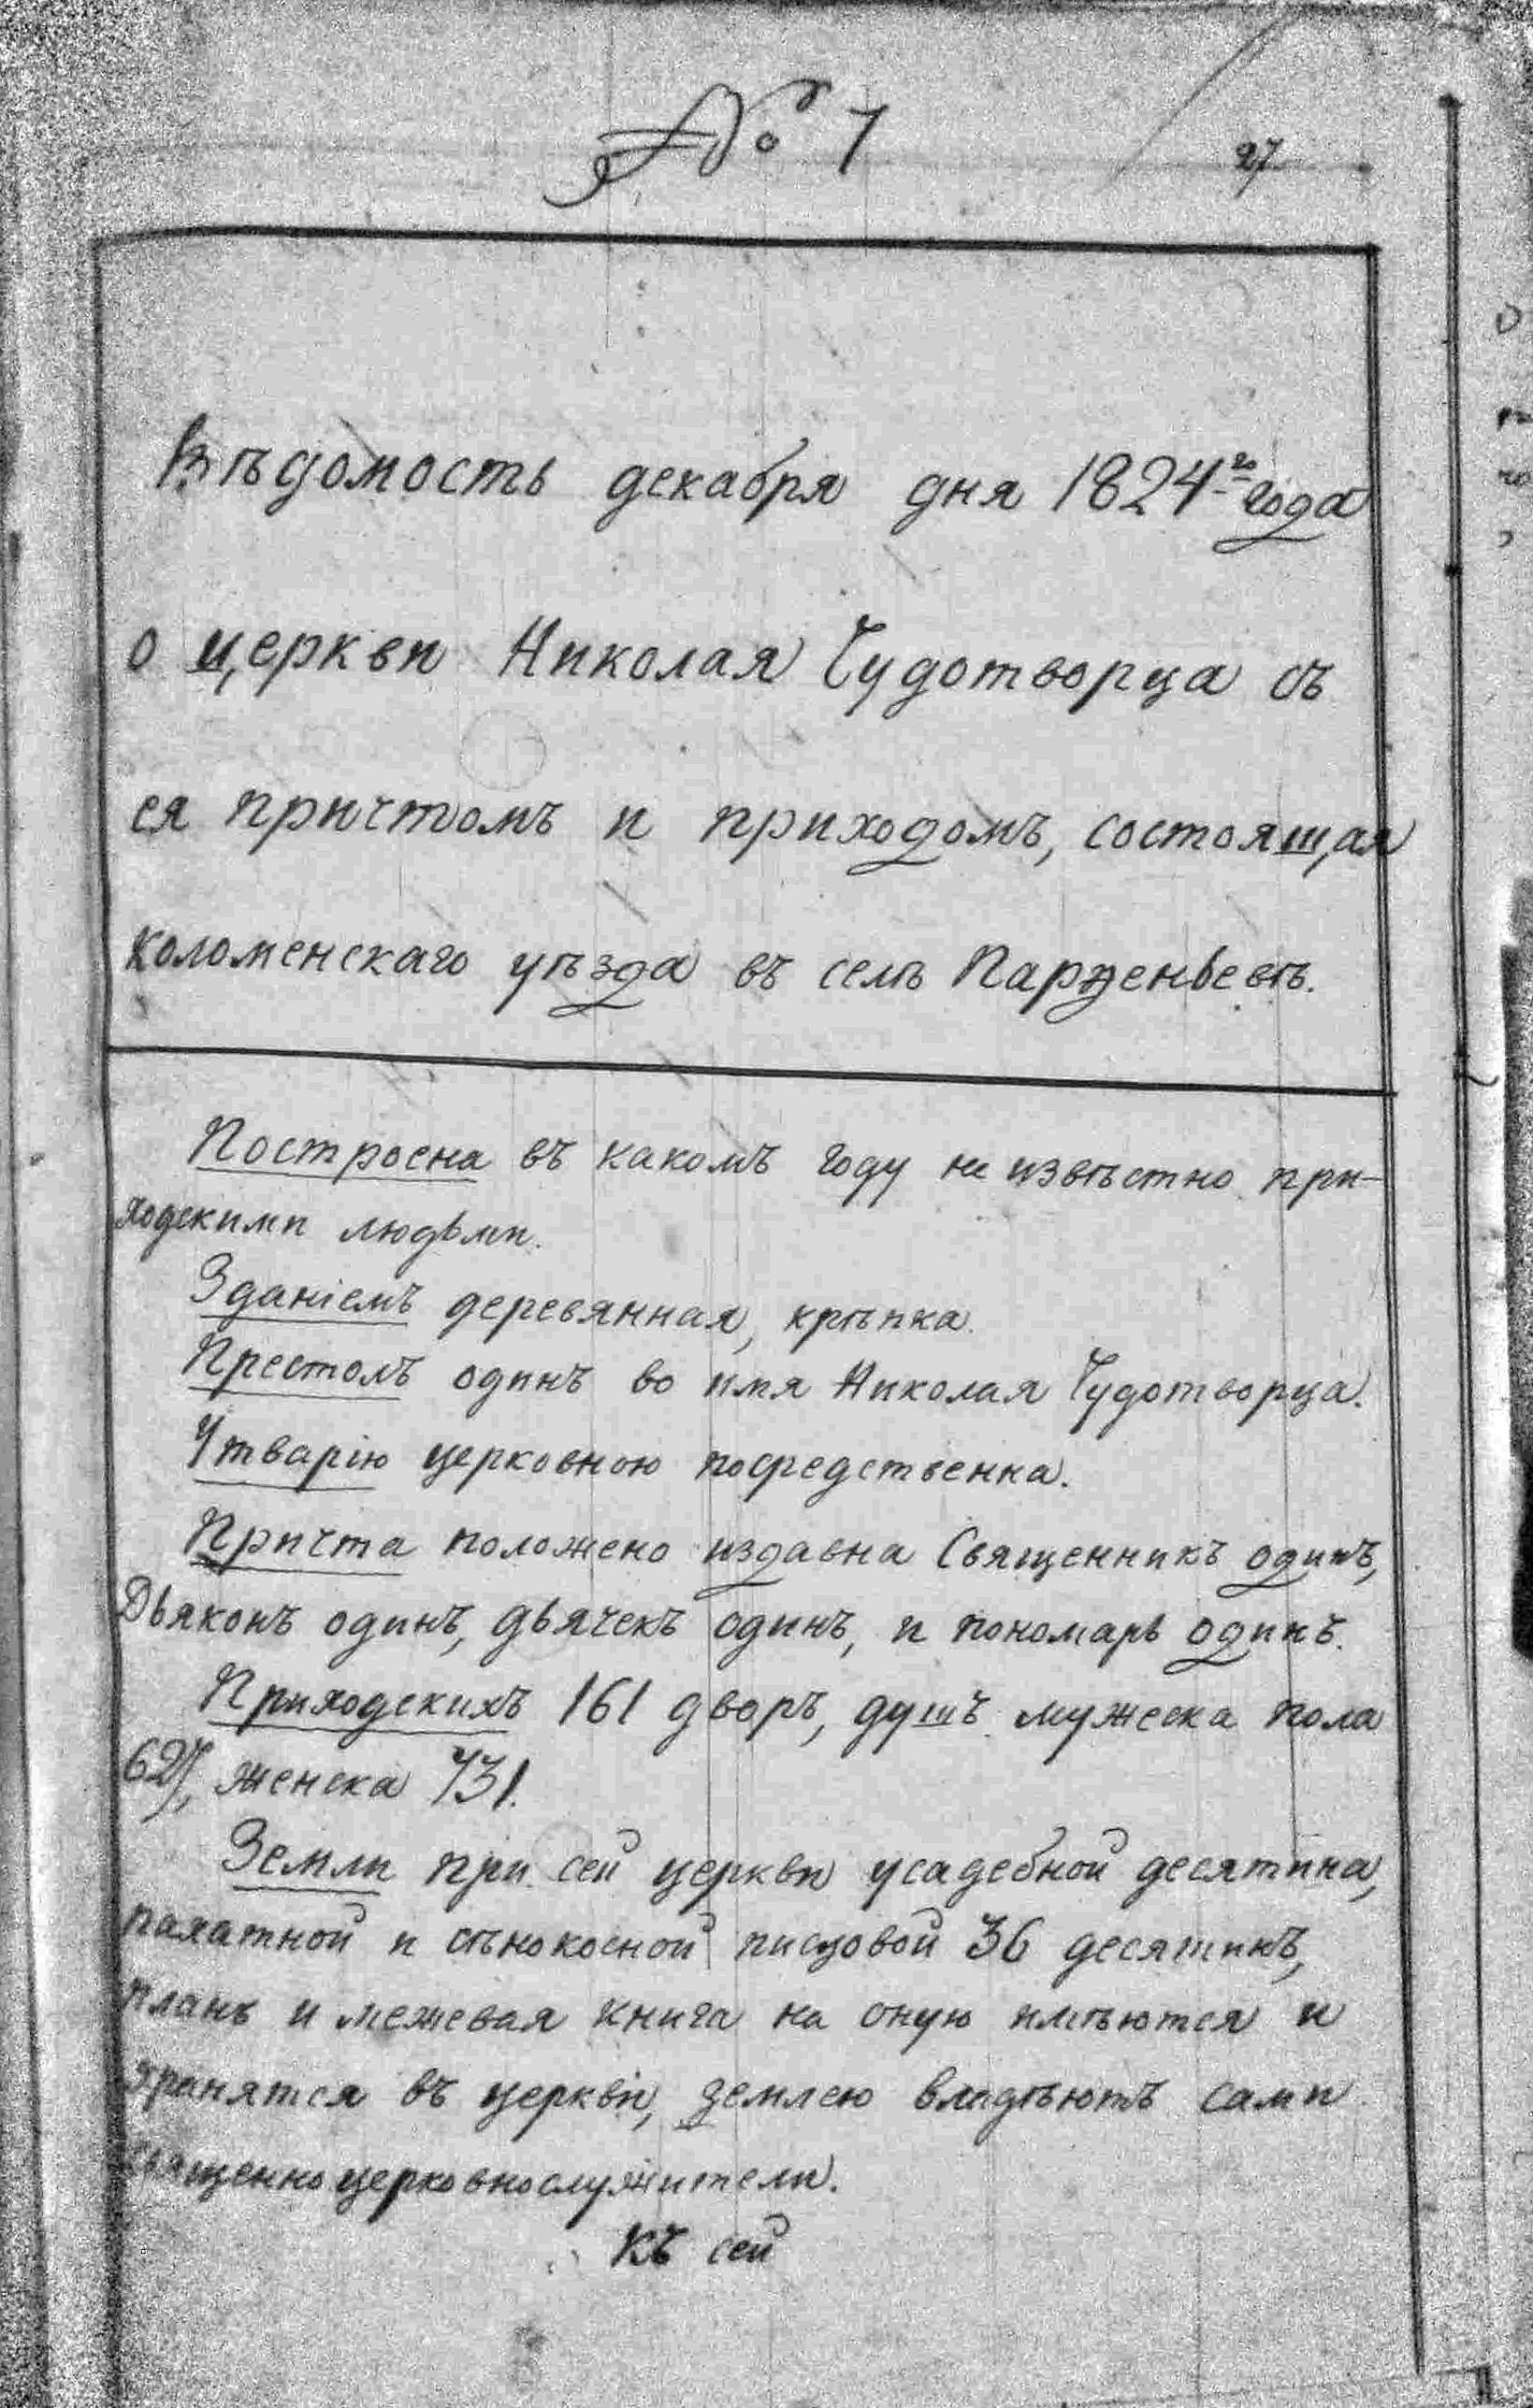 № 7
27
Вѣдомость декабря дня 1824го года
о церкви Николая Чудотворца съ
ея причтомъ и приходомъ, состоящая
Коломенскаго уѣзда въ селѣ Парѳеньевѣ.
Построена въ какомъ году не извѣстно при-
ходскими людьми.
Зданіемъ деревянная, крѣпка.
Престолъ одинъ во имя Николая Чудотворца.
Утварію церковною посредственна.
Причта положено издавна Священникъ одинъ,
Дьяконъ одинъ, дьячекъ одинъ, и пономарь одинъ.
Приходскихъ 161 дворъ, душъ мужеска пола
627, женска 731.
Земли при сей церкви усадебной десятина,
пахатной и сѣнокосной писцовой 36 десятинъ,
планъ и межевая книга на оную имѣются и
хранятся въ церкви, землею владѣютъ сами
священноцерковнослужители.
Къ сей